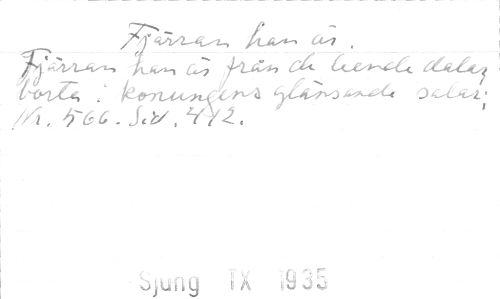 Fjärran han är.
Fjärran han är från de leende dalar,
borta i konungens glänsande salar;
Nr. 566. Sid. 412.
Sjung IX 1935